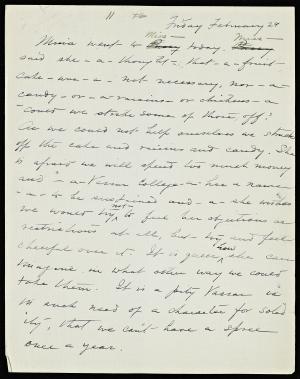 11
Friday February 24
Miss Miss
Minnie went to Prexy today. Prexy
said she - a - thought - that - a - fruit -
cake - wa - a - not necessary, nor - a -
candy - or - a raisins - or chickens - a -
could we strike some of those, off?
As we could not help ourselves we struck
off the cake and raisins and candy. She
is afraid we will spend too much money
and " - a - Vassar College - a - has a name -
- a - to be sustained and - a - she wishes
not
we would try to feel her objections as
restrictions at all, but - try and feel
how
cheerful over it. It is queer she can
imagine, in what other way we could
take them. It is a pity Vassar is
in such need of a character for solid
ity, that we can't have a spree
once a year.